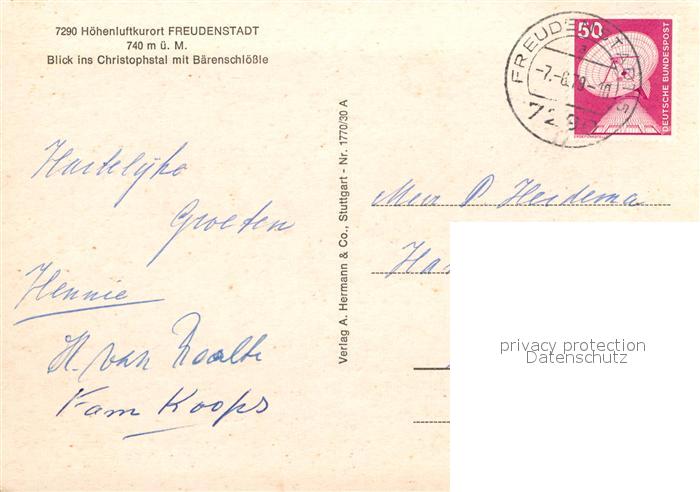 7290 Höhenluftkurort FREUDENSTADT
740 m ü. M.
Blick ins Christophstal mit Bärenschlößle
Hartelijke
Groeten
Hennie
H. van Raalte
Fam Koops
Verlag A. Hermann & Co., Stuttgart - Nr. 1770/30 A
FREUDENSTADT
729
50
DEUTSCHE BUNDESPOST
Mevr P Heidema
Ha
privacy protection
Datenschutz